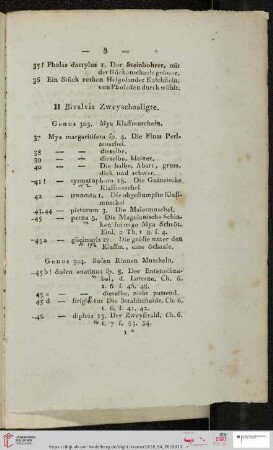 — 8 —
35 f Pholas dactylus 1. Der Steinbohrer, mit
der Rückenschaale
36 Ein Stück rothen Helgolander Kalchstein,
von Pholaden durch wühlt.
II Bivalvia Zweyschaaligte.
Genus 303. Mya Klaffmuscheln.
37 Mya margaritifera sp. 4. Die Fluss Perl-
muschel.
38 — — dieselbe.
39 — — dieselbe, kleiner.
40 — — Die Abart, gross,
dick und schwer.
41 — 18. Die Guineische
Klaffmuschel
42 — truncata 1. Die abgestumpfte Klaff-
muschel
43-44 — pictorum 3. Die Malermuschel.
45 — 5. Die Magellanische Schin-
ken förmige Mya Schröt.
Einl. 2 Th. t. 8. f. 4.
45 a — 17. Die größte unter den
Klaffm., eine Schaale.
Genus 304. Solen Rinnen Muscheln.
45 b Solen anatinus sp. 8. Der Entenschna-
bel, d. Laterne, Ch. 6.
t. 6. f. 46, 48.
45 c — — dieselbe, nicht passend.
45 d — Die Stralscheide, Ch. 6.
t. 6 f. 41, 42.
46 — diphos 13. Der Zweystral. Ch. 6.
t. 7 f. 53, 54.